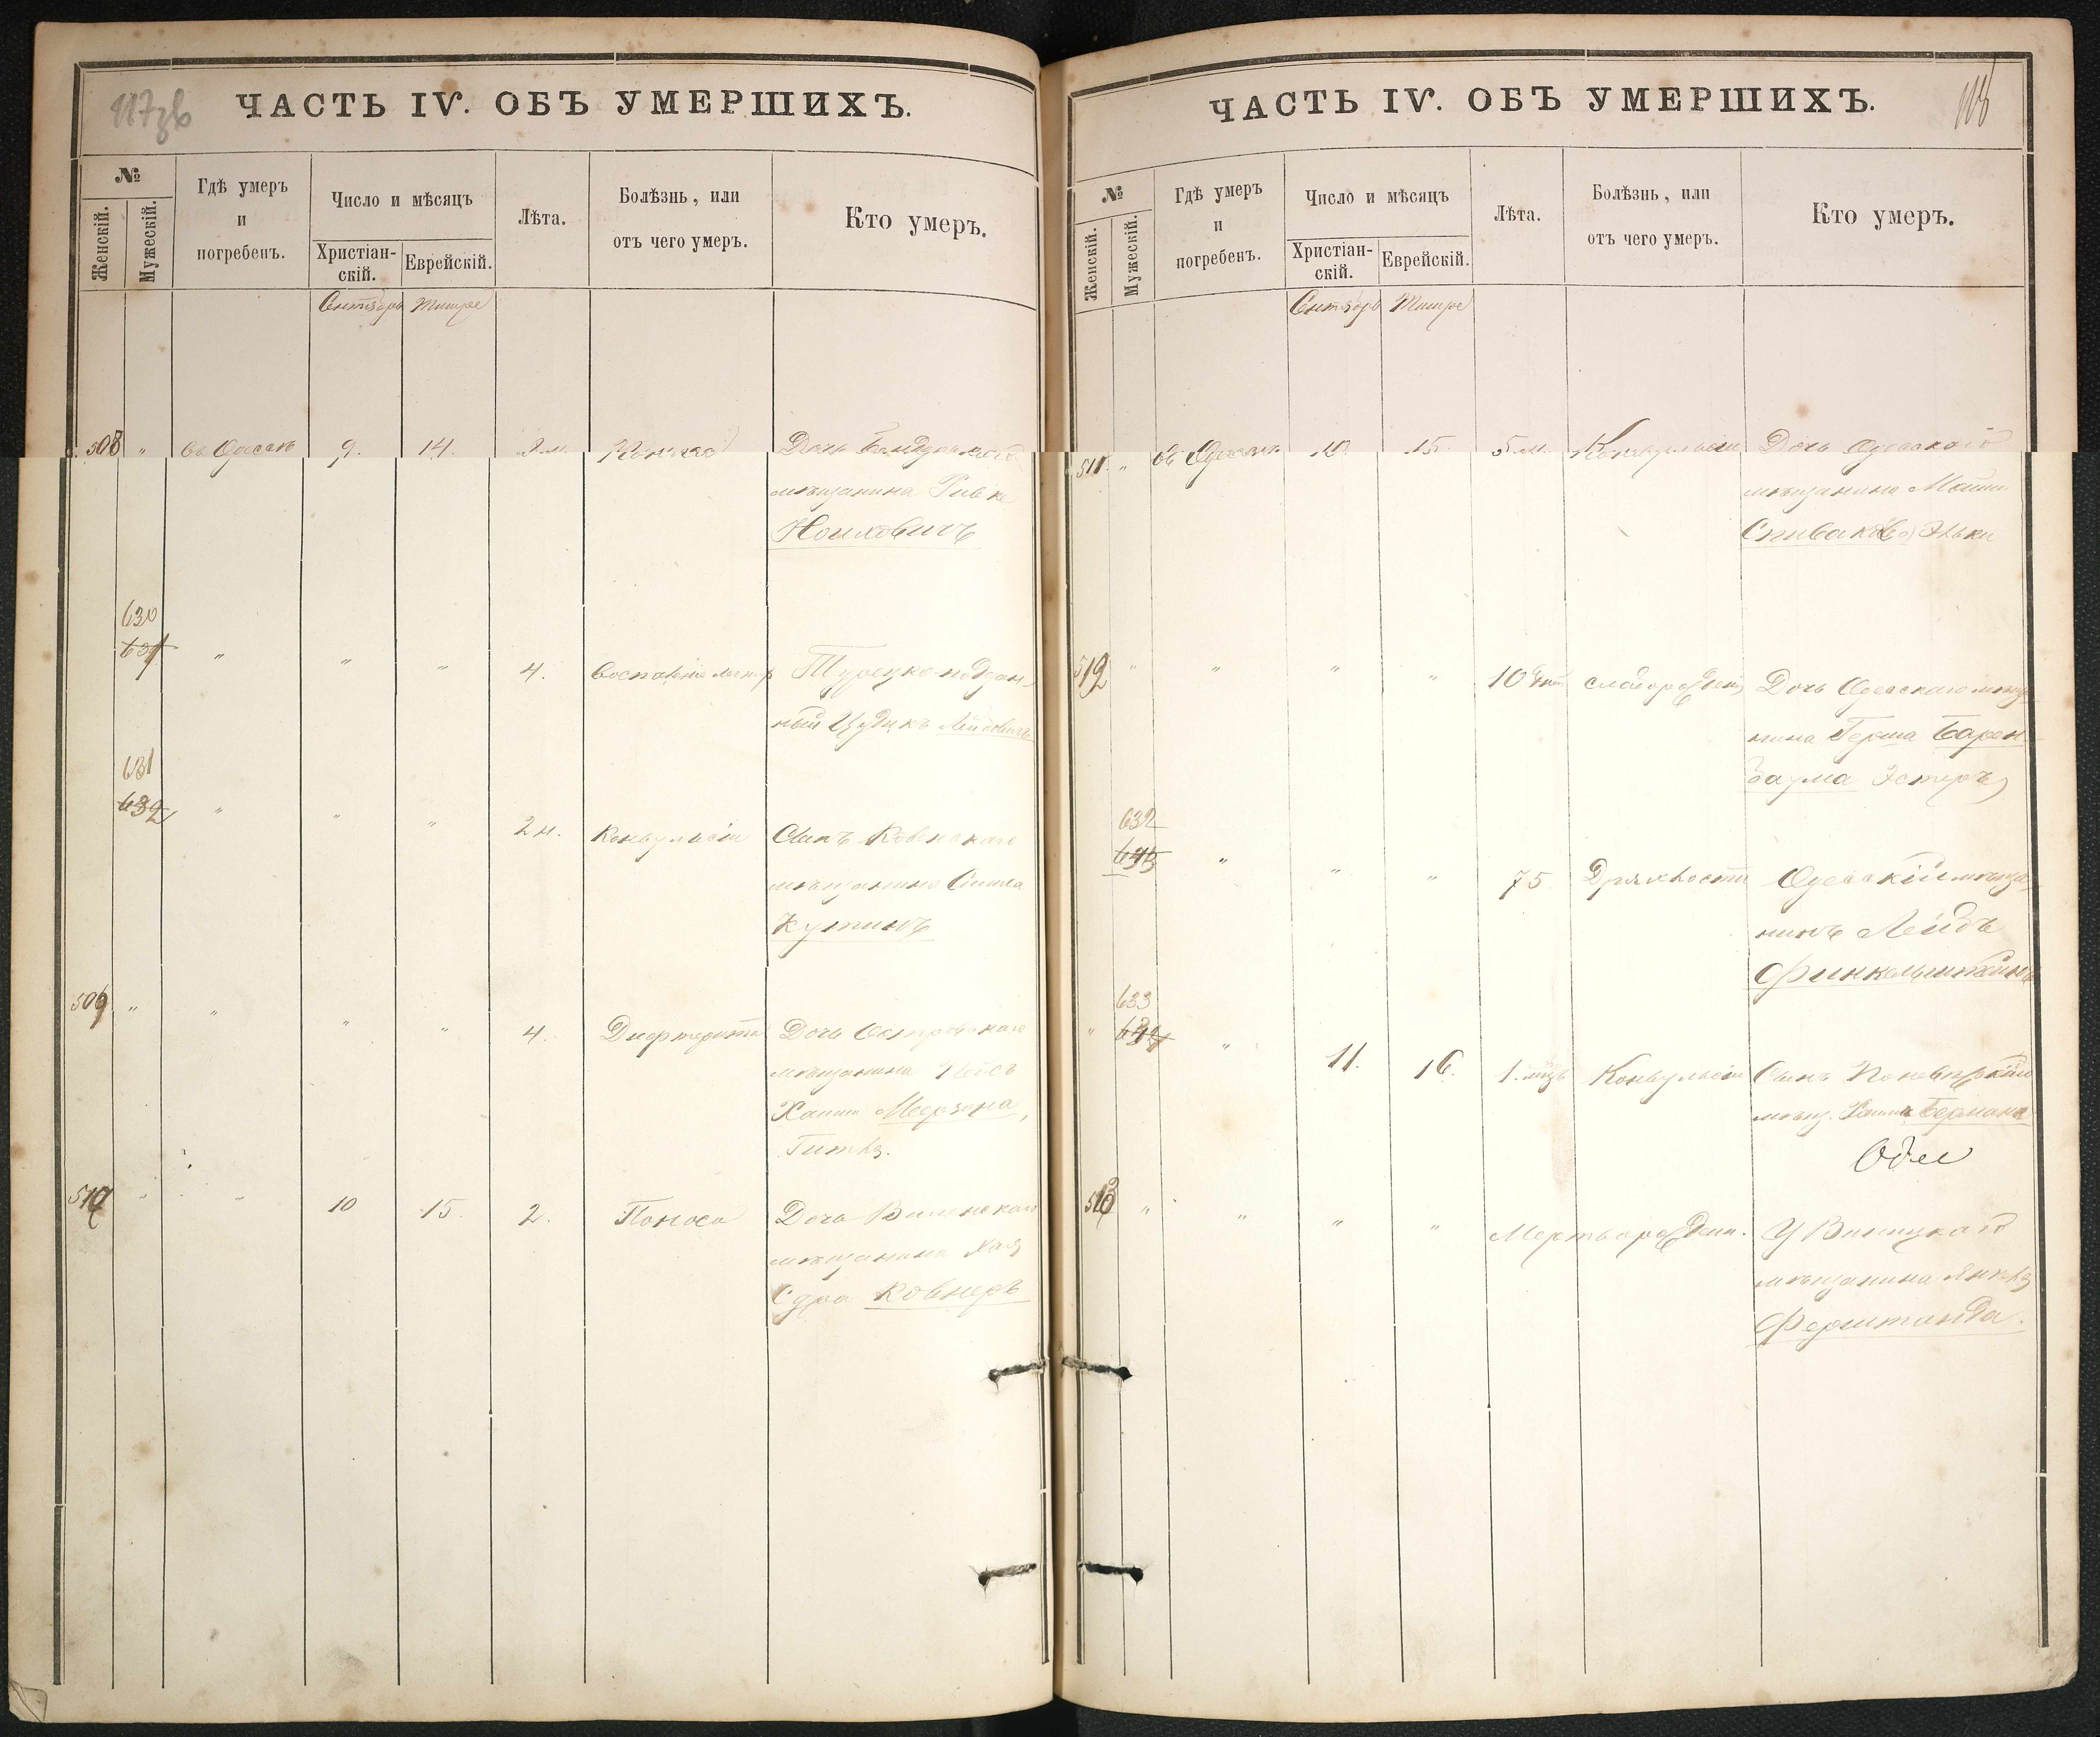 117зв
ЧАСТЬ IV. ОБЪ УМЕРШИХЪ.
№
Женскій.
Мужескій.
Гдѣ умеръ
и
погребенъ.
Число и мѣсяцъ
Христіан-
скій.
Еврейскій.
Лѣта.
Болѣзнь, или
отъ чего умеръ.
Кто умеръ.
Сентябрь Тишре
508 " въ Одессѣ 9. 14. 2 м. Дочь Бендерскаго
мѣщанина Ривка
Ноиховичъ
630
631 " " " 4. Воспаленіе легк. Турецко-поддан-
ный Цудикъ Лейбовичъ
631
632 " " " 2 н. Конвульсіи Сынъ Ковенскаго
мѣщанина
Кутинъ
509 " " " " 4. Дифтерита Дочь Островскаго
мѣщанина
Хаима Меерзона,
Гитля.
510 " " 10 15. 2. Поноса Дочь Виленскаго
мѣщанина Хая
Сура Ковнеръ
ЧАСТЬ IV. ОБЪ УМЕРШИХЪ.
118
№
Женскій.
Мужескій.
Гдѣ умеръ
и
погребенъ.
Число и мѣсяцъ
Христіан-
скій.
Еврейскій.
Лѣта.
Болѣзнь, или
отъ чего умеръ.
Кто умеръ.
Сентябрь Тишре
511. " въ Одессѣ 10. 15. 5 м. Конвульсіи Дочь Одесскаго
мѣщанина
Спивакова Элька
512 " " " " 10 дней слаборожден. Дочь Одесскаго мѣща-
нина Герша Барен-
баума Эстеръ
632
633 " " " 75 Дряхлости Одесскій мѣща-
нинъ Лейбъ
Финкельштейнъ
633
" 634 " 11. 16. 1. мѣс. Конвульсіи Сынъ Поневѣжскаго
мѣщ. Хаима Бермана
513 " " " " Мертворожден. У Винницкаго
мѣщанина Янкля
Ферштанда.